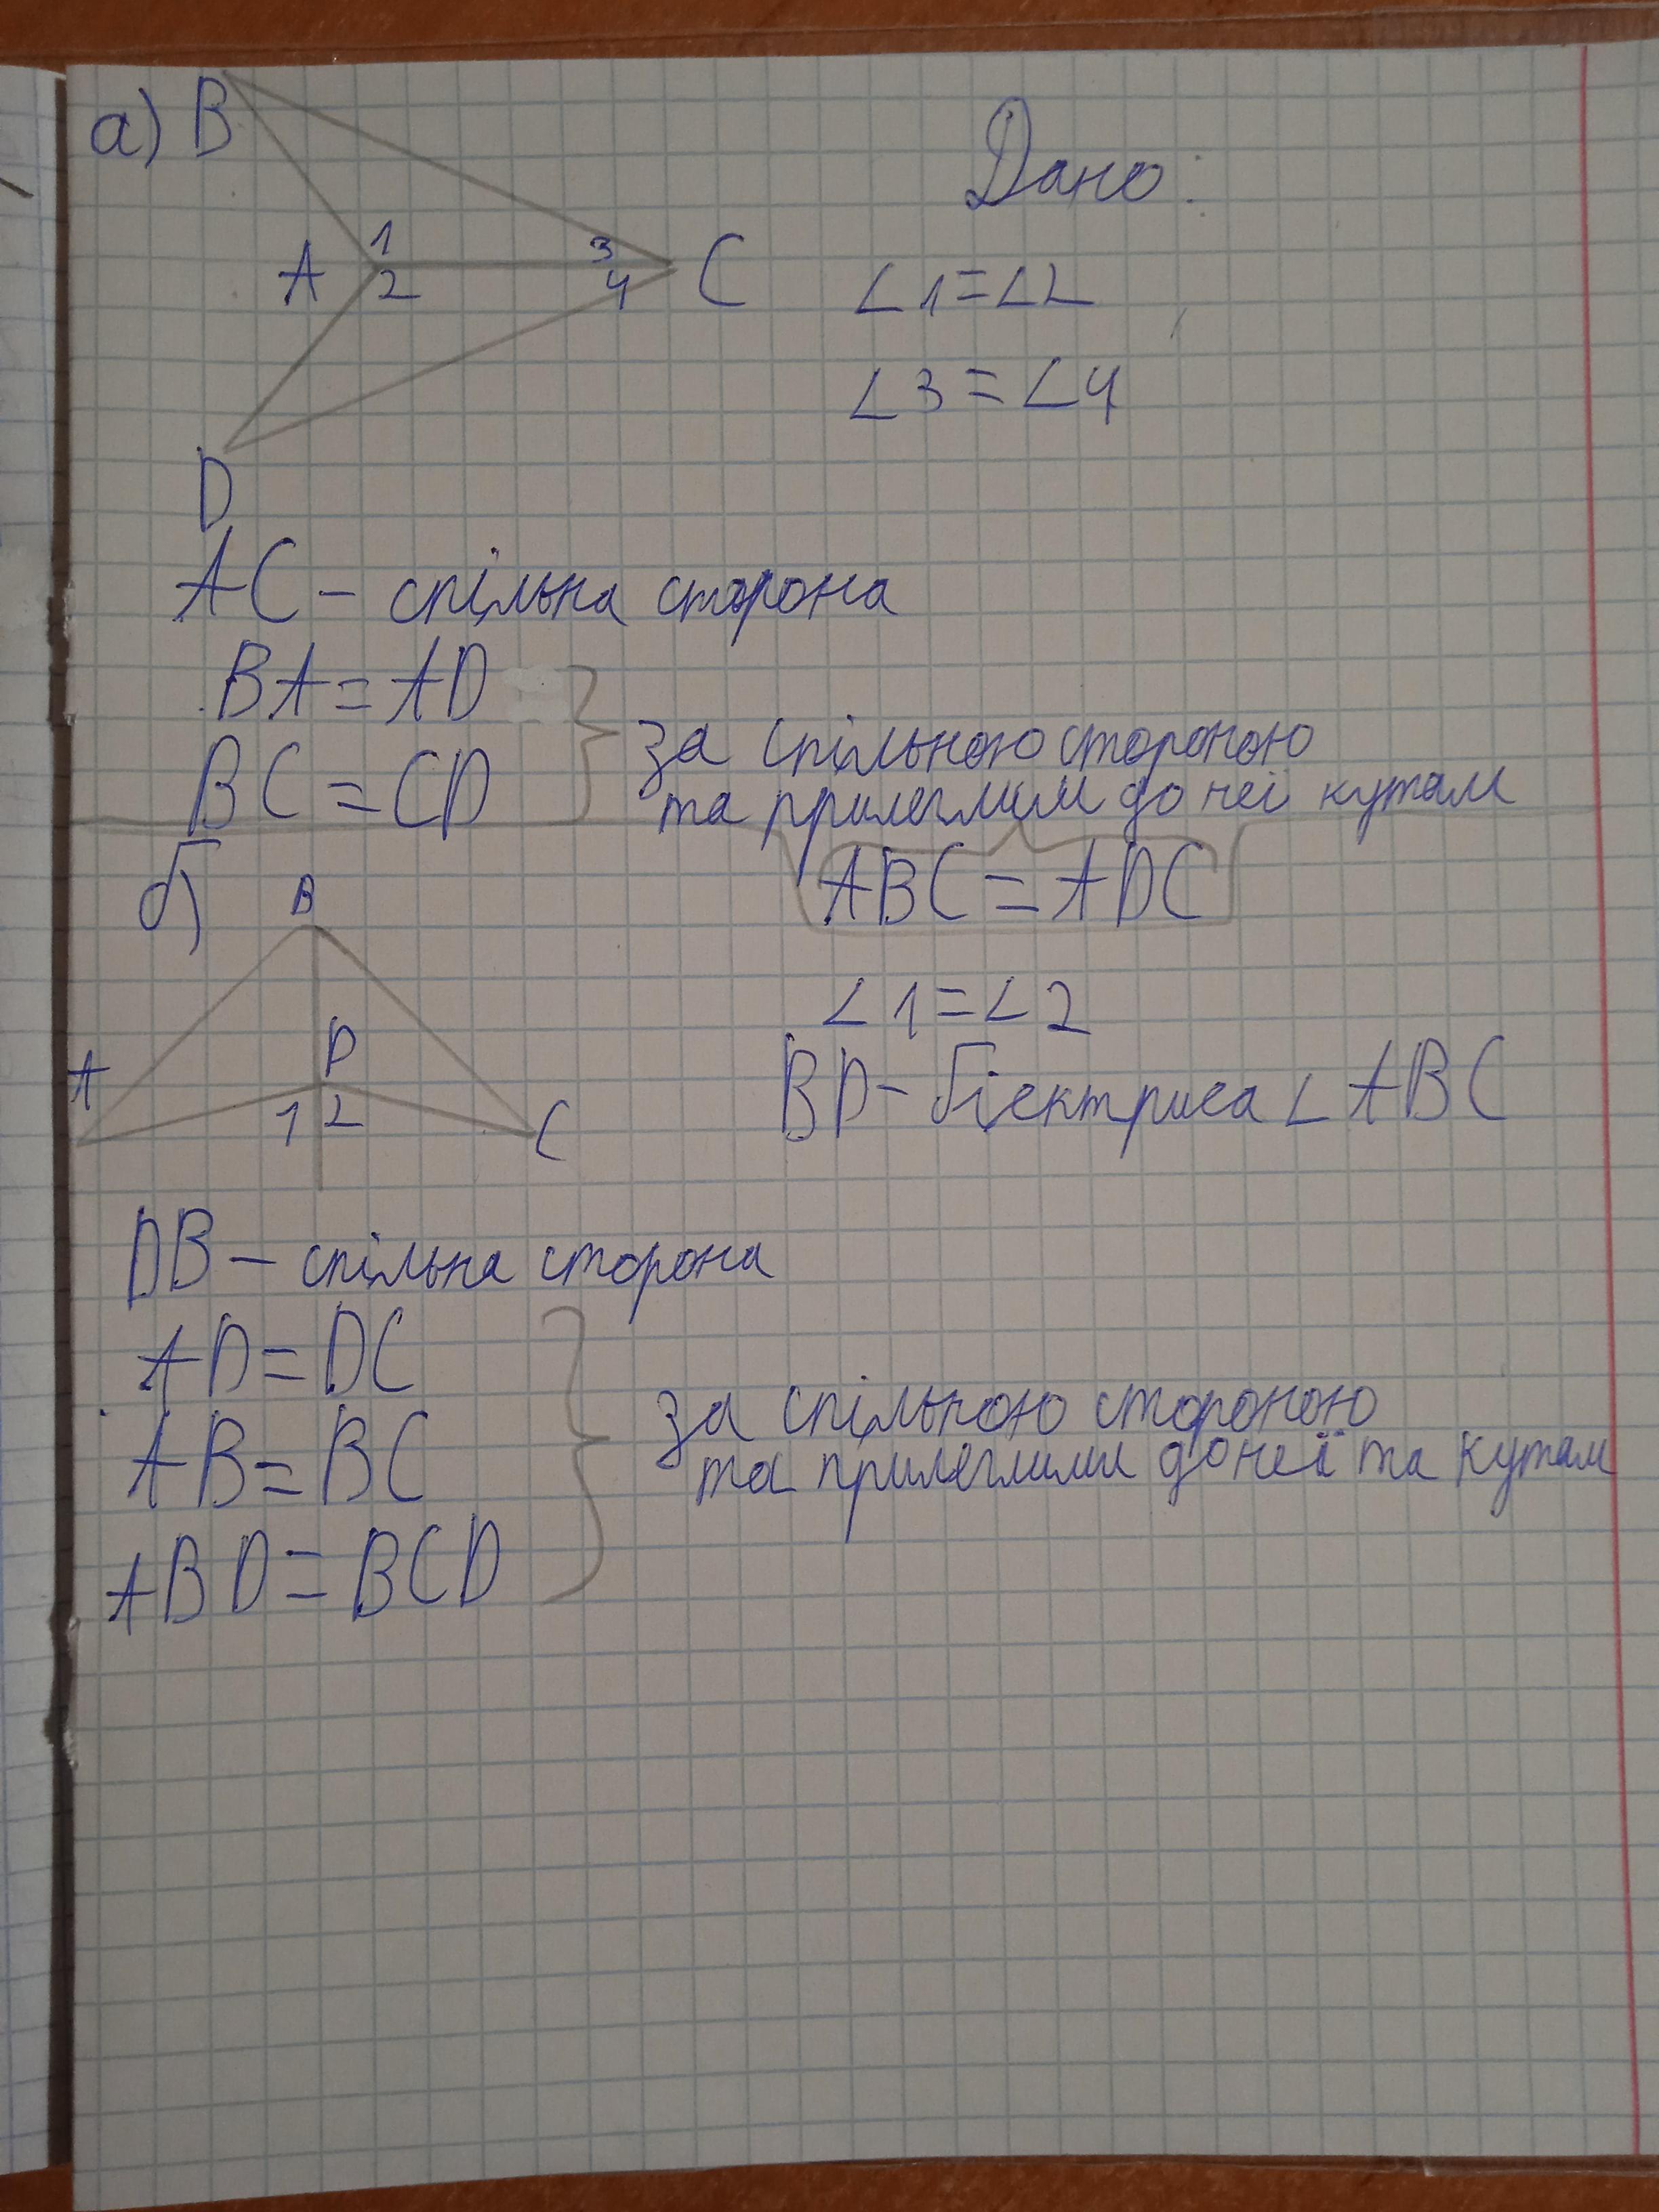 а) B
Дано:
A 1 2 3 4 C
∠1=∠2
∠3=∠4
D
AC – спільна сторона
BA = AD
BC = CD
за спільною стороною
та прилеглими до неї кутам
ABC = ADC
б) B
∠1=∠2
A D 1 2 C
BD – бісектриса ∠ABC
DB – спільна сторона
AD = DC
AB = BC
за спільною стороною
та прилеглими до неї та кутам
ABD = BCD